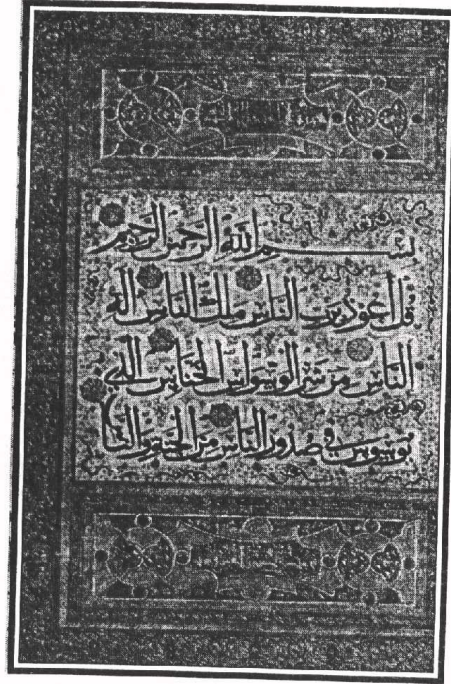 بسم الله الرحمن الرحيم
قل أعوذ برب الناس ملك الناس إله
الناس من شر الوسواس الخناس الذي
يوسوس في صدور الناس من الجنة والناس